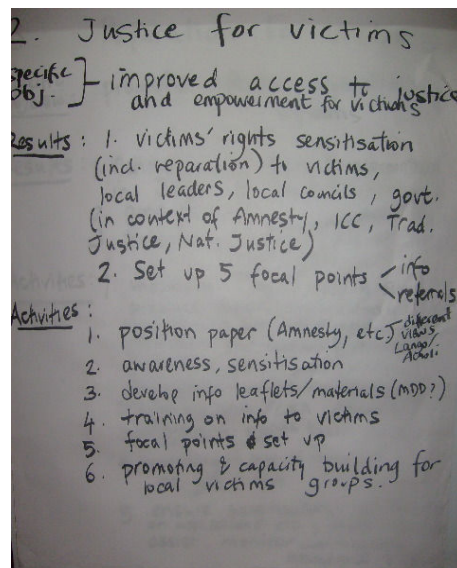 2. Justice for victims
specific obj. } - improved access to justice
and empowerment for victims
Results : 1. victims' rights sensitisation
(incl. reparation) to victims,
local leaders, local councils, govt.
(in context of Amnesty, ICC, Trad.
Justice, Nat. Justice)
2. Set up 5 focal points - info
- referrals
Activities :
1. position paper (Amnesty, etc) - different views Lango/ Acholi
2. awareness, sensitisation
3. develop info leaflets/materials (MDD?)
4. training on info to victims
5. focal points & set up
6. promoting & capacity building for
local victims groups.